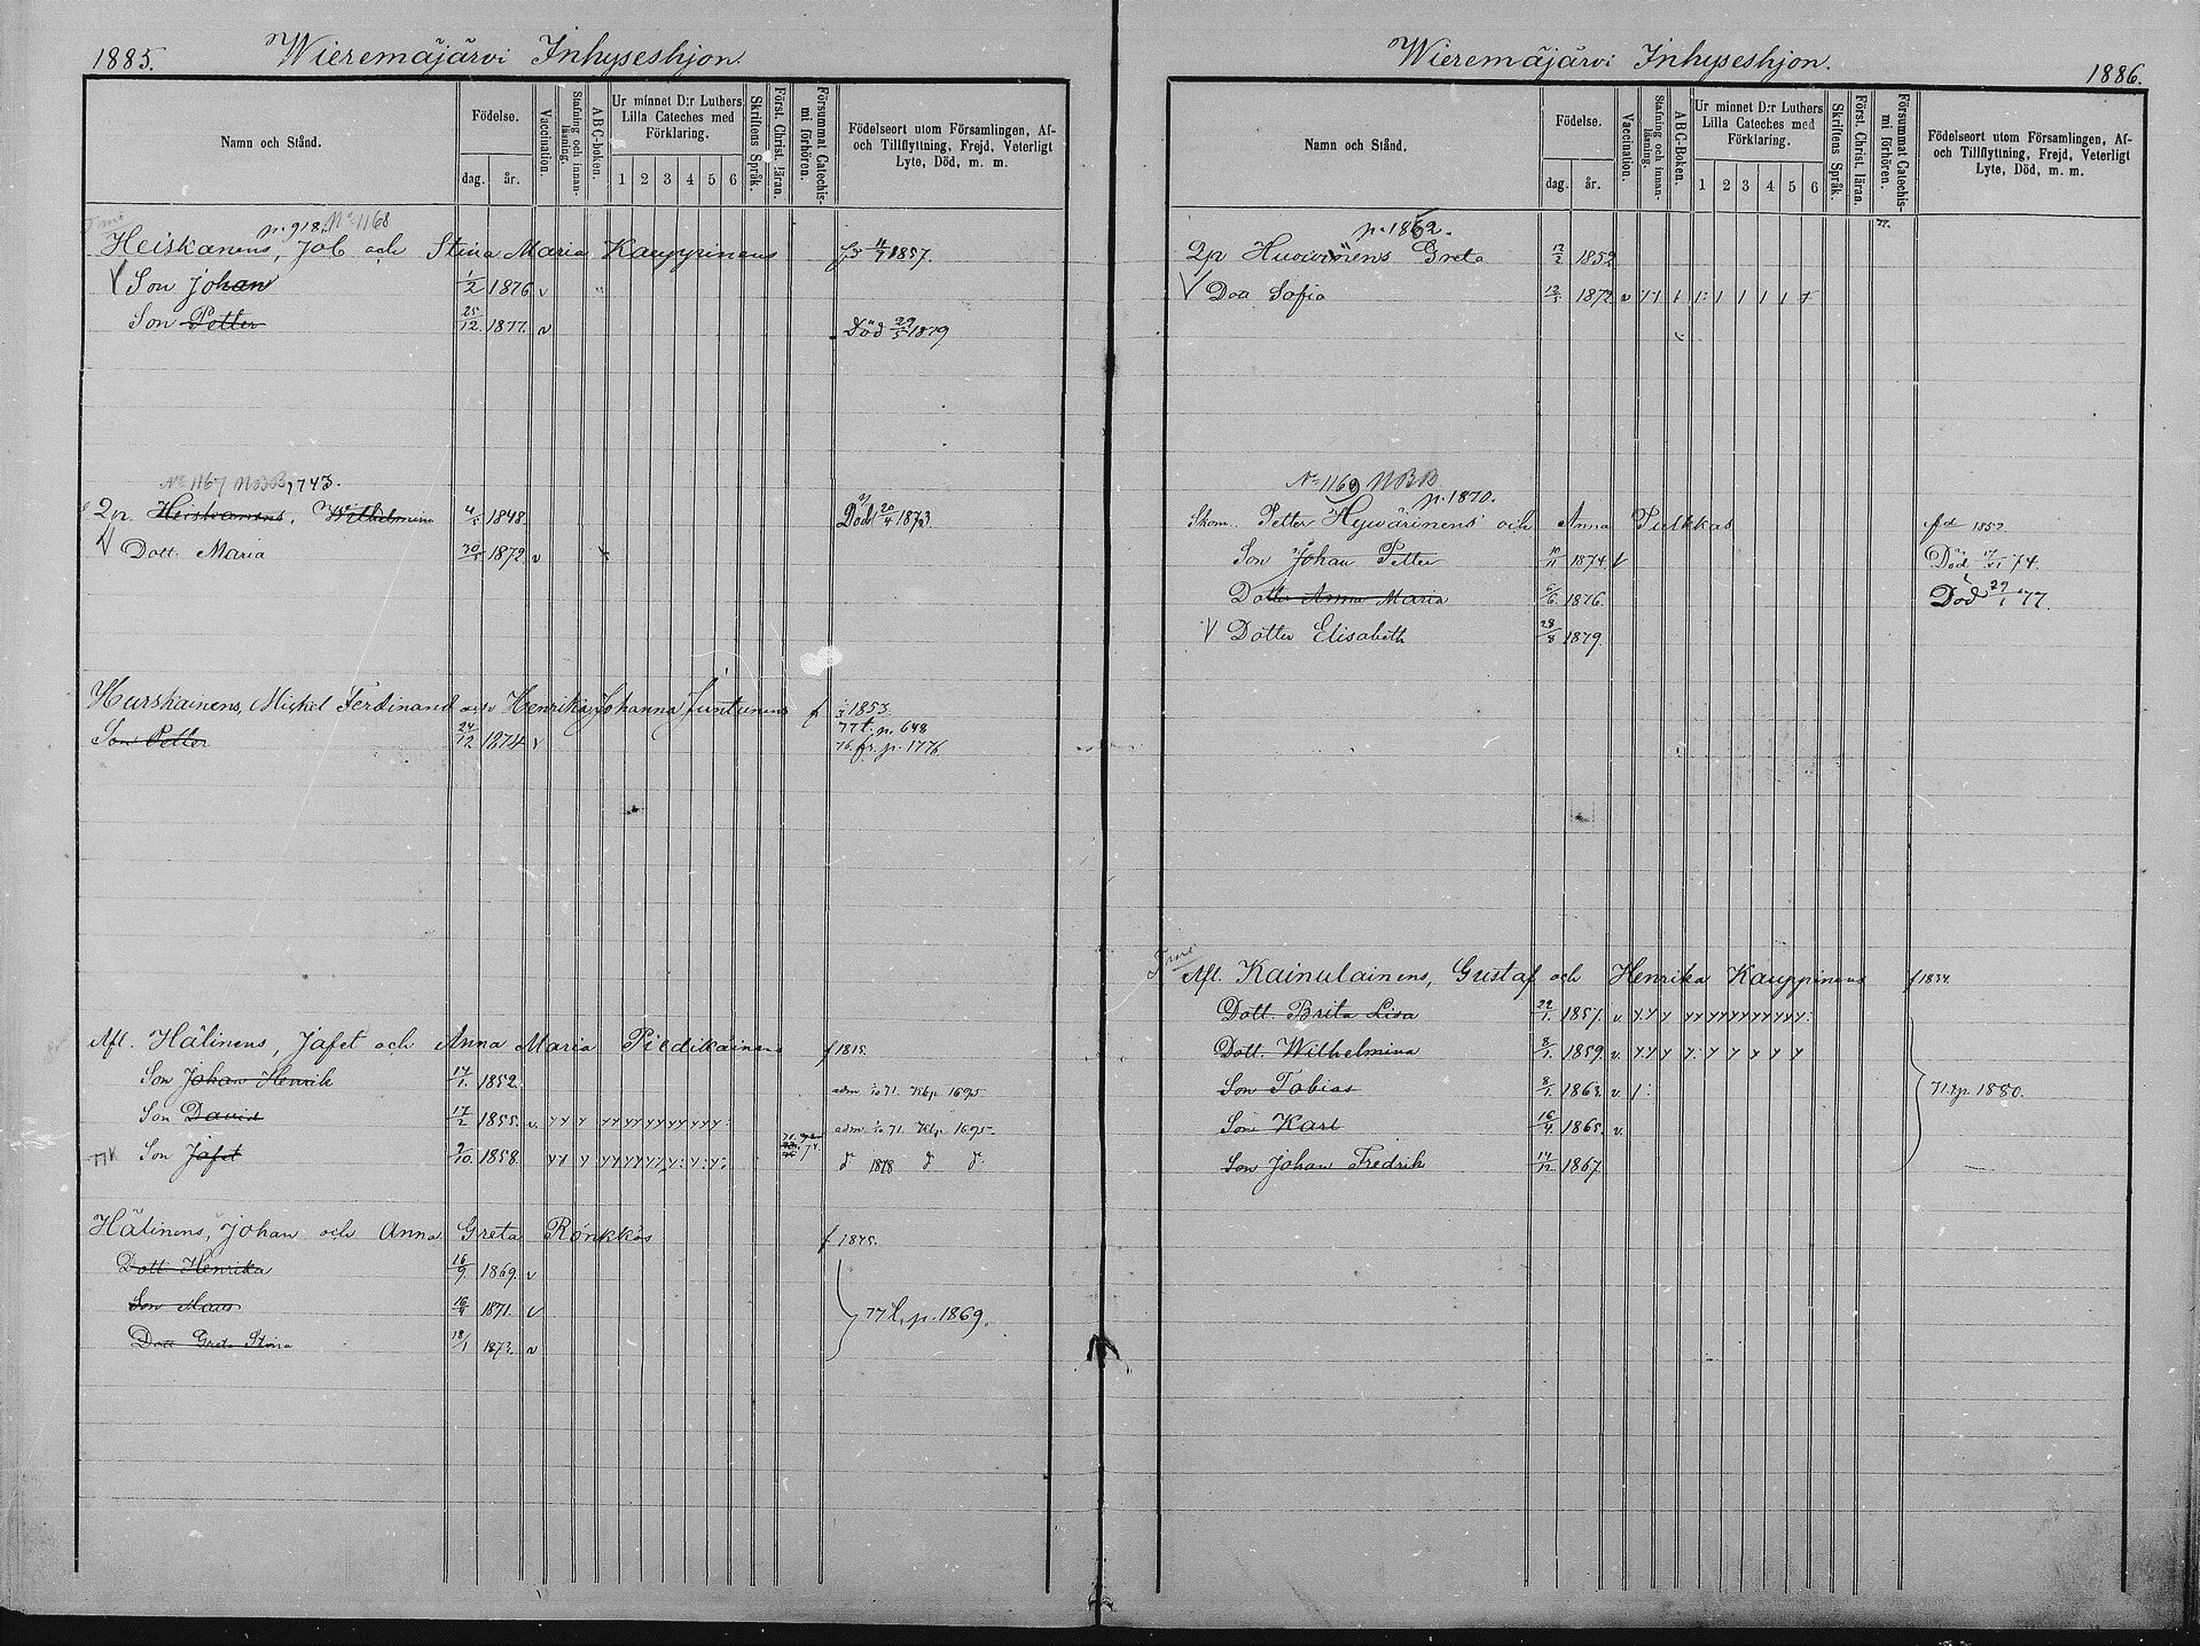 1885.
Wieremäjärvi Inhyseshjon.
Namn och Stånd.
Födelse.
dag.
år.
Vaccination.
Stafning och innan-
läsning.
ABC-boken.
Ur minnet D:r Luthers
Lilla Cateches med
Förklaring.
1 2 3 4 5 6
Skriftens Språk.
Först. Christ. läran.
Försummat Catechis-
mi förhören.
Födelseort utom Församlingen, Af-
och Tillflyttning, Frejd, Veterligt
Lyte, Död, m. m.
p. 918. No 1168
Heiskanens, Job och Stina Maria Kauppinens 1857.
V Son Johan 1/2 1876 v
Son Petter 25/12 1877. v Död 29/5 1879
No 1167 NBB, 743.
Qp. Heiskanens, Wilhelmina 4/5 1848. Död 20/4 1873
V Dott. Maria 30/5 1872 v
Hurskainens, Mickel Ferdinand och Henrika Johanna Juntunens f 1853.
77 t. p. 648
Son Petter 24/12 1874 v 76. fr. p. 1776
Afl. Hälinens, Jafet och Anna Maria Piedikäinens f 1815.
Son Johan Henrik 14/1. 1852. adm 71. Kbp. 1695
Son David 17/2 1855. v. adm. 71. Kbp. 1695
Son Jafet 9/10. 1858. 1878
Hälinens, Johan och Anna Greta Rönkkös f 1845.
Dott Henrika 16/9. 1869. v
Son Maus 16/9 1871. v 77 t. p. 1869.
Dott Greta Stina 18/1 1873. v
Wieremäjärvi Inhyseshjon.
1886.
Namn och Stånd.
Födelse.
dag.
år.
Vaccination.
Stafning och innan-
läsning.
ABC-Boken.
Ur minnet D:r Luthers
Lilla Cateches med
Förklaring.
1 2 3 4 5 6
Skriftens Språk.
Först. Christ. läran.
Försummat Catechis-
mi förhören.
Födelseort utom Församlingen, Af-
och Tillflyttning, Frejd, Veterligt
Lyte, Död, m. m.
77.
p. 1862.
Qp Huovinens Greta 12/2 1852
V Doa Sofia 1872 v
No 1169 NBB
p. 1870.
Skom. Petter Hyvärinens och Anna Pulkkas fd 1852.
Son Johan Petter 10/11 1874 v Död 17/11 74.
Dotter Anna Maria 6/6. 1876. Död 29/1 77.
V Dotter Elisabeth 28/8 1879.
Afl. Kainulainens, Gustaf och Henrika Kauppinens f 1834.
Dott. Brita Lisa 22/1. 1857. v.
Dott. Wilhelmina 8/1. 1859. v.
Son Tobias 8/1. 1863. v. 71. t. p. 1880.
Son Karl 16/4. 1865. v.
Son Johan Fredrik 14/12. 1867.